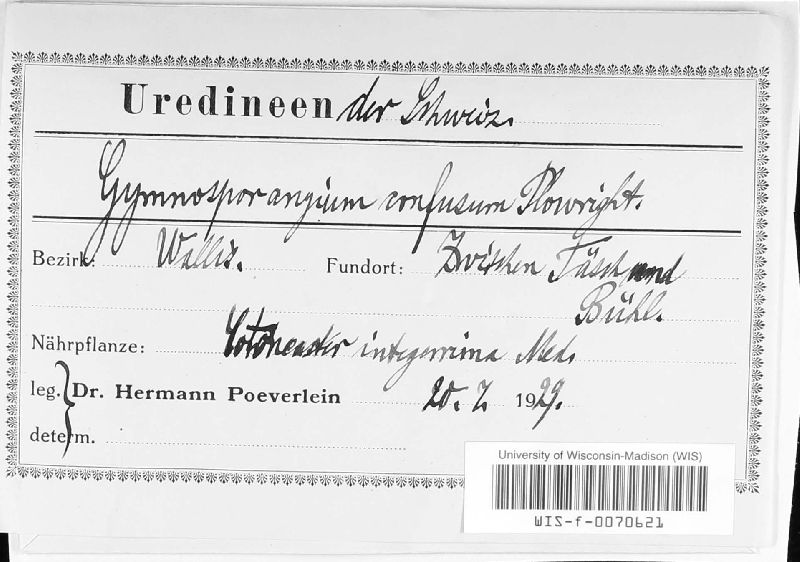 Uredineen der Schweiz.
Gymnosporangium confusum Plowright.
Bezirk: Wallis. Fundort: Zwischen Täsch und
Bühl.
Nährpflanze: Cotoneaster integerrima Med.
leg. Dr. Hermann Poeverlein 20. 7. 1929.
determ.
University of Wisconsin-Madison (WIS)
WIS-f-0070621